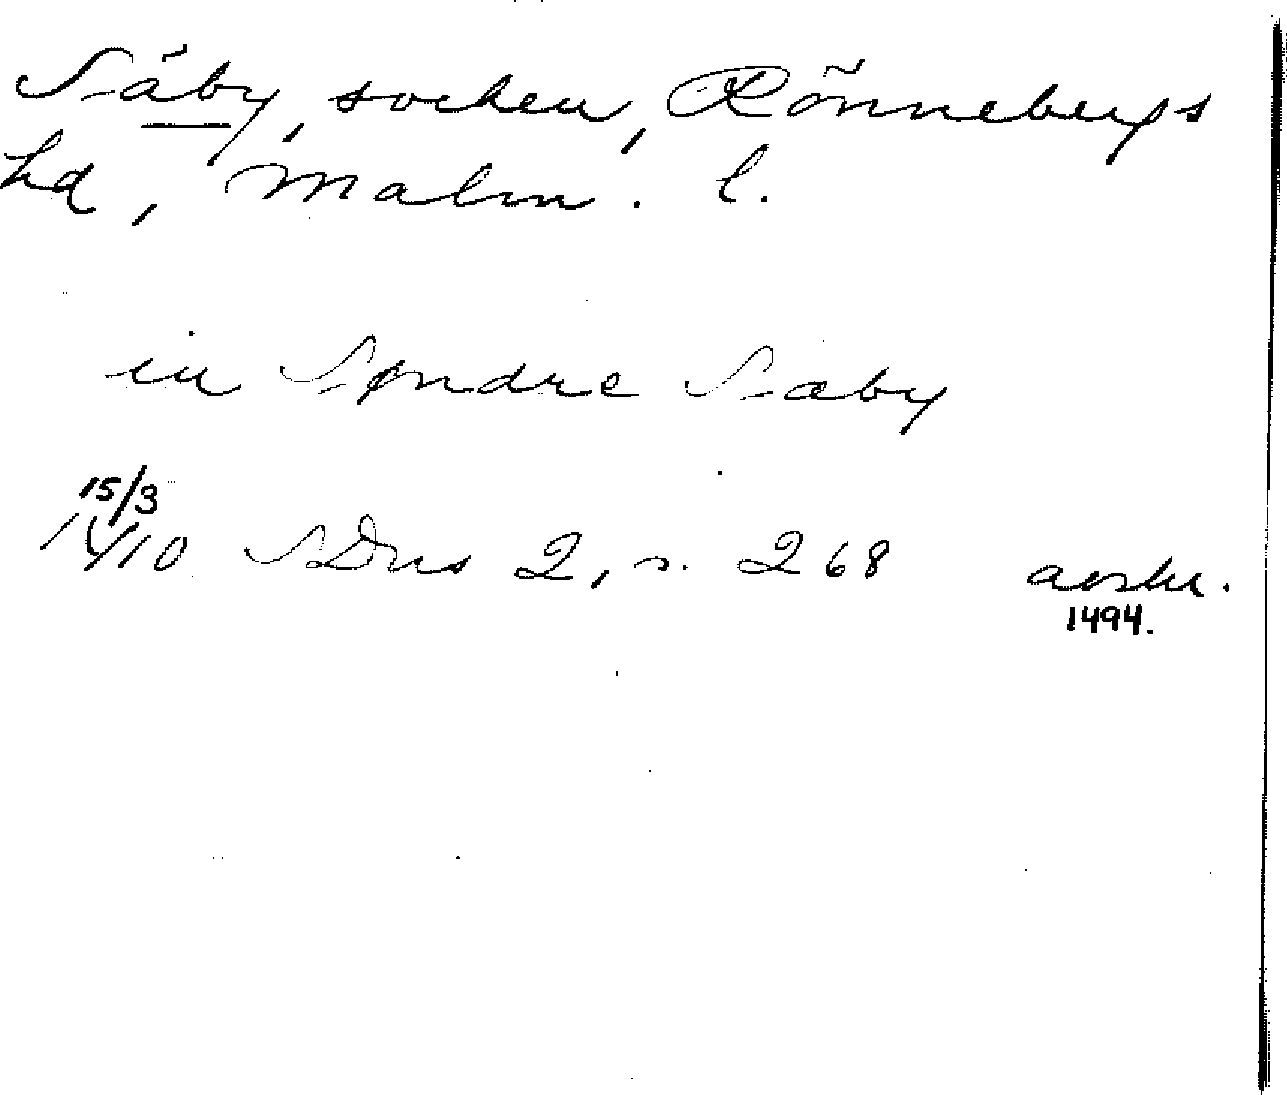 Säby, socken, Rönnebergs
hd, Malm. l.
in Søndre Sæby
15/3
14/10 SDns 2, s. 268 avskr.
1494.